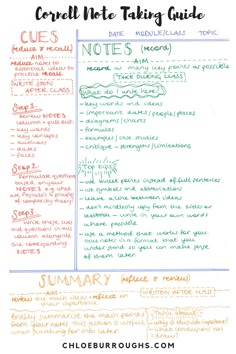 Cornell Note Taking Guide
CUES
(reduce & recall)
AIM
reduce notes to
essential ideas to
practise recall
WRITE FROM
AFTER CLASS
Step 1
review NOTES
column + pull out:
- key words
- key concepts
- authors
- dates
- facts
Step 2
Formulate questions
based on your
NOTES e.g. what
are Piaget's 4 groups
of cognitive theory?
Step 3
write these cues
and questions in this
column alongside
the corresponding
NOTES
DATE MODULE/CLASS TOPIC
NOTES (record)
AIM
record as many key points as possible
TAKE DURING CLASS
What do I write here?
- key words and ideas
- important dates/people/places
- diagrams/charts
- formulas
- examples/case studies
- critique - strengths/limitations
Top tips
- use bullet points instead of full sentences
- use symbols and abbreviations
- leave a line between ideas
- don't mindlessly copy from the slide or
textbook - write in your own words
where possible
- use a method that works for you
take notes in a format that you
understand so you can make sense
of them later
SUMMARY (reflect & review)
AIM
the main ideas + reflect on
their importance
WRITTEN AFTER CLASS
Briefly summarise the main points
from your notes this section is useful
when hunting for info later
Think about:
- why is this info important?
- what conclusions can
CHLOEBURROUGHS.COM